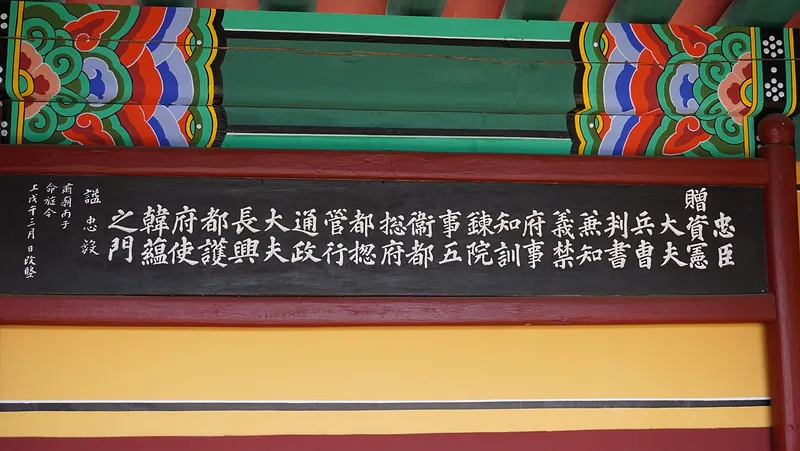 忠臣
贈資憲
大夫
兵曺
判書
兼知
義禁
府事
知訓
鍊院
事五
衛都
揔府
都揔
管行
通政
大夫
長興
都護
府使
韓蘊
之門
諡 忠毅
肅廟丙子
命旌今
上戊午三月 日改竪